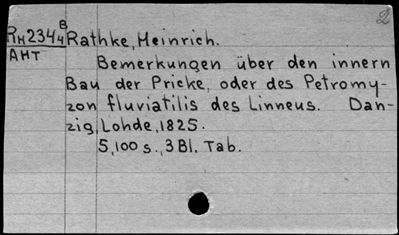 2
RH 234 4 B Rathke, Heinrich.
AHT
Bemerkungen über den innern
Bau der Pricke, oder des Petromy-
zon fluviatilis des Linneus. Dan-
zig, Lohde, 1825.
5,100 s., 3 Bl. Tab.